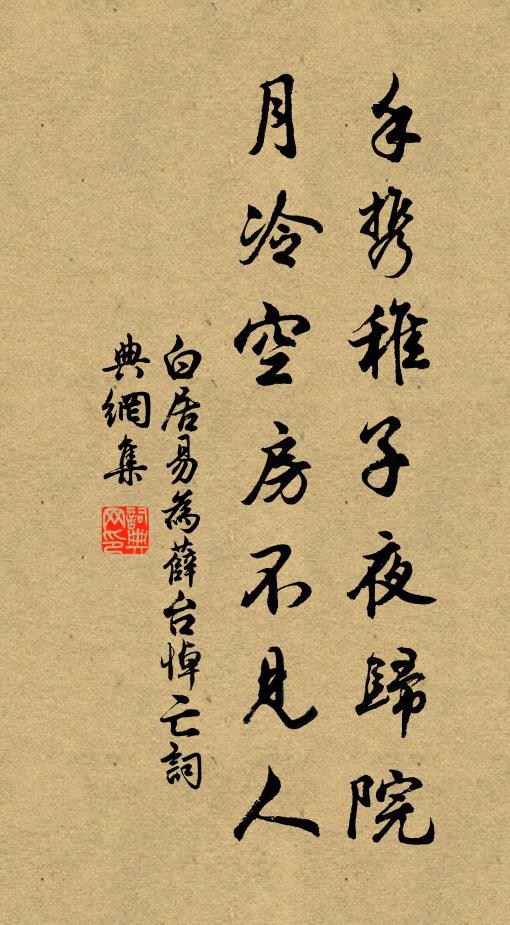 手携稚子夜歸院
月冷空房不見人
白居易為薛台悼亡詞
典網集
詞典網印